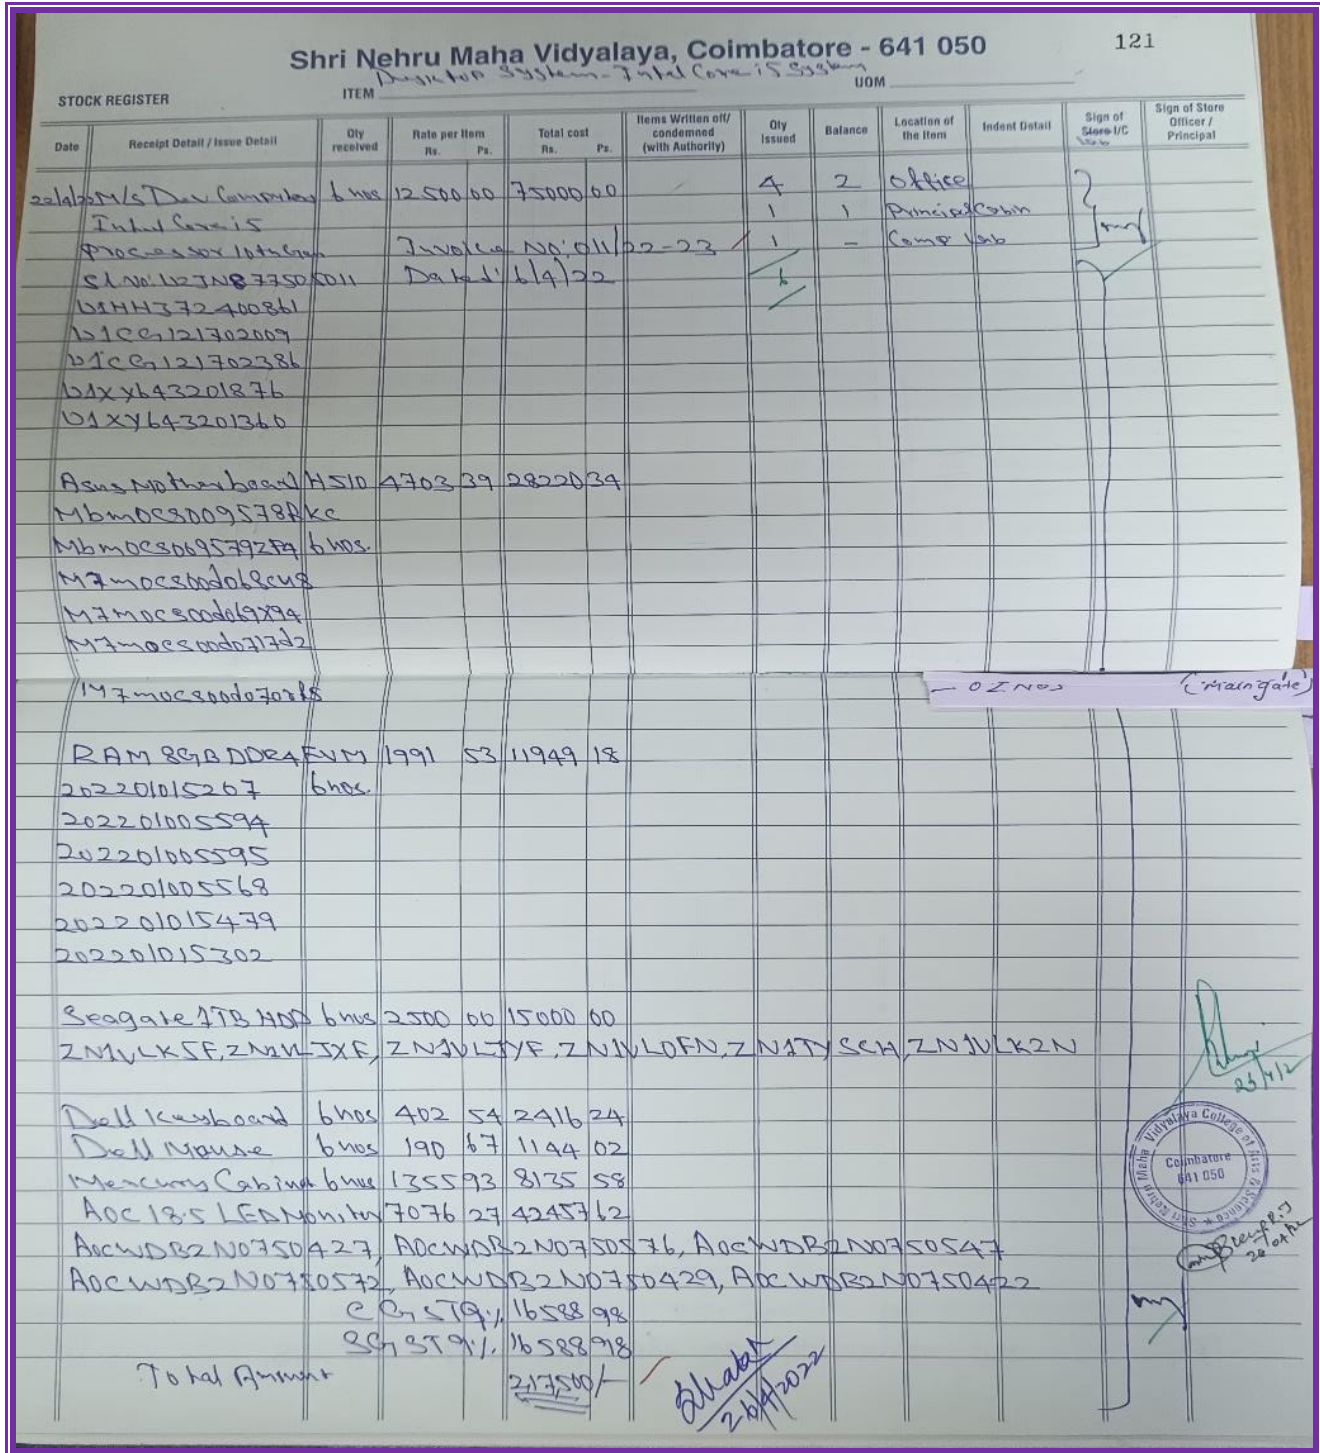 121
Shri Nehru Maha Vidyalaya, Coimbatore - 641 050
STOCK REGISTER ITEM Desktop System - Intel Core i5 System UOM
Date Receipt Detail / Issue Detail Qty received Rate per Item Rs. Ps. Total cost Rs. Ps. Items Written off/ condemned (with Authority) Qty Issued Balance Location of the Item Indent Detail Sign of Store I/C Sign of Store Officer / Principal
22/4/22 M/s Dev Computers 6 nos 12500 00 75000 00 4 2 Office
Intel Core i5 1 1 Principal Cabin
Processor 10th Gen Invoice No: 011/22-23 1 - Comp Lab
Sl.No: U2JN877505011 Dated: 6/4/22 6
U1HH372400861
U1CG121702009
U1CG121702386
U1XY643201876
U1XY643201360
Asus Motherboard H510 4703 39 28220 34
MbmOCS009578RKC
MbmOCS069579ZF4 6 nos.
M7mocs00d068cu8
M7mocs00d069X94
M7mocs00d0717d2
M7mocs00d070
- 02 Nos (Maingate)
RAM 8GB DDR4 EVM 1991 53 11949 18
202201015267 6 nos.
202201005594
202201005595
202201005568
202201015479
202201015302
Seagate 1TB HDD 6 nos 2500 00 15000 00
ZN1VLK5F, ZN1VLJXF, ZN1VLJYF, ZN1VLDFN, ZN1TYSCH, ZN1VLK2N
Dell Keyboard 6 nos 402 54 2416 24
Dell Mouse 6 nos 190 67 1144 02
Mercury Cabinet 6 nos 1355 93 8135 58
AOC 18.5 LED Monitor 7076 27 42457 62
AOCWDB2N0750427, AOCWDB2N0750576, AOCWDB2N0750547
AOCWDB2N0750572, AOCWDB2N0750429, AOCWDB2N0750422
CGST 9% 16588 98
SGST 9% 16588 98
Total Amount 217,500/-
26/4/2022
26/4/2
Shri Nehru Maha Vidyalaya College of Arts & Science
Coimbatore
641 050